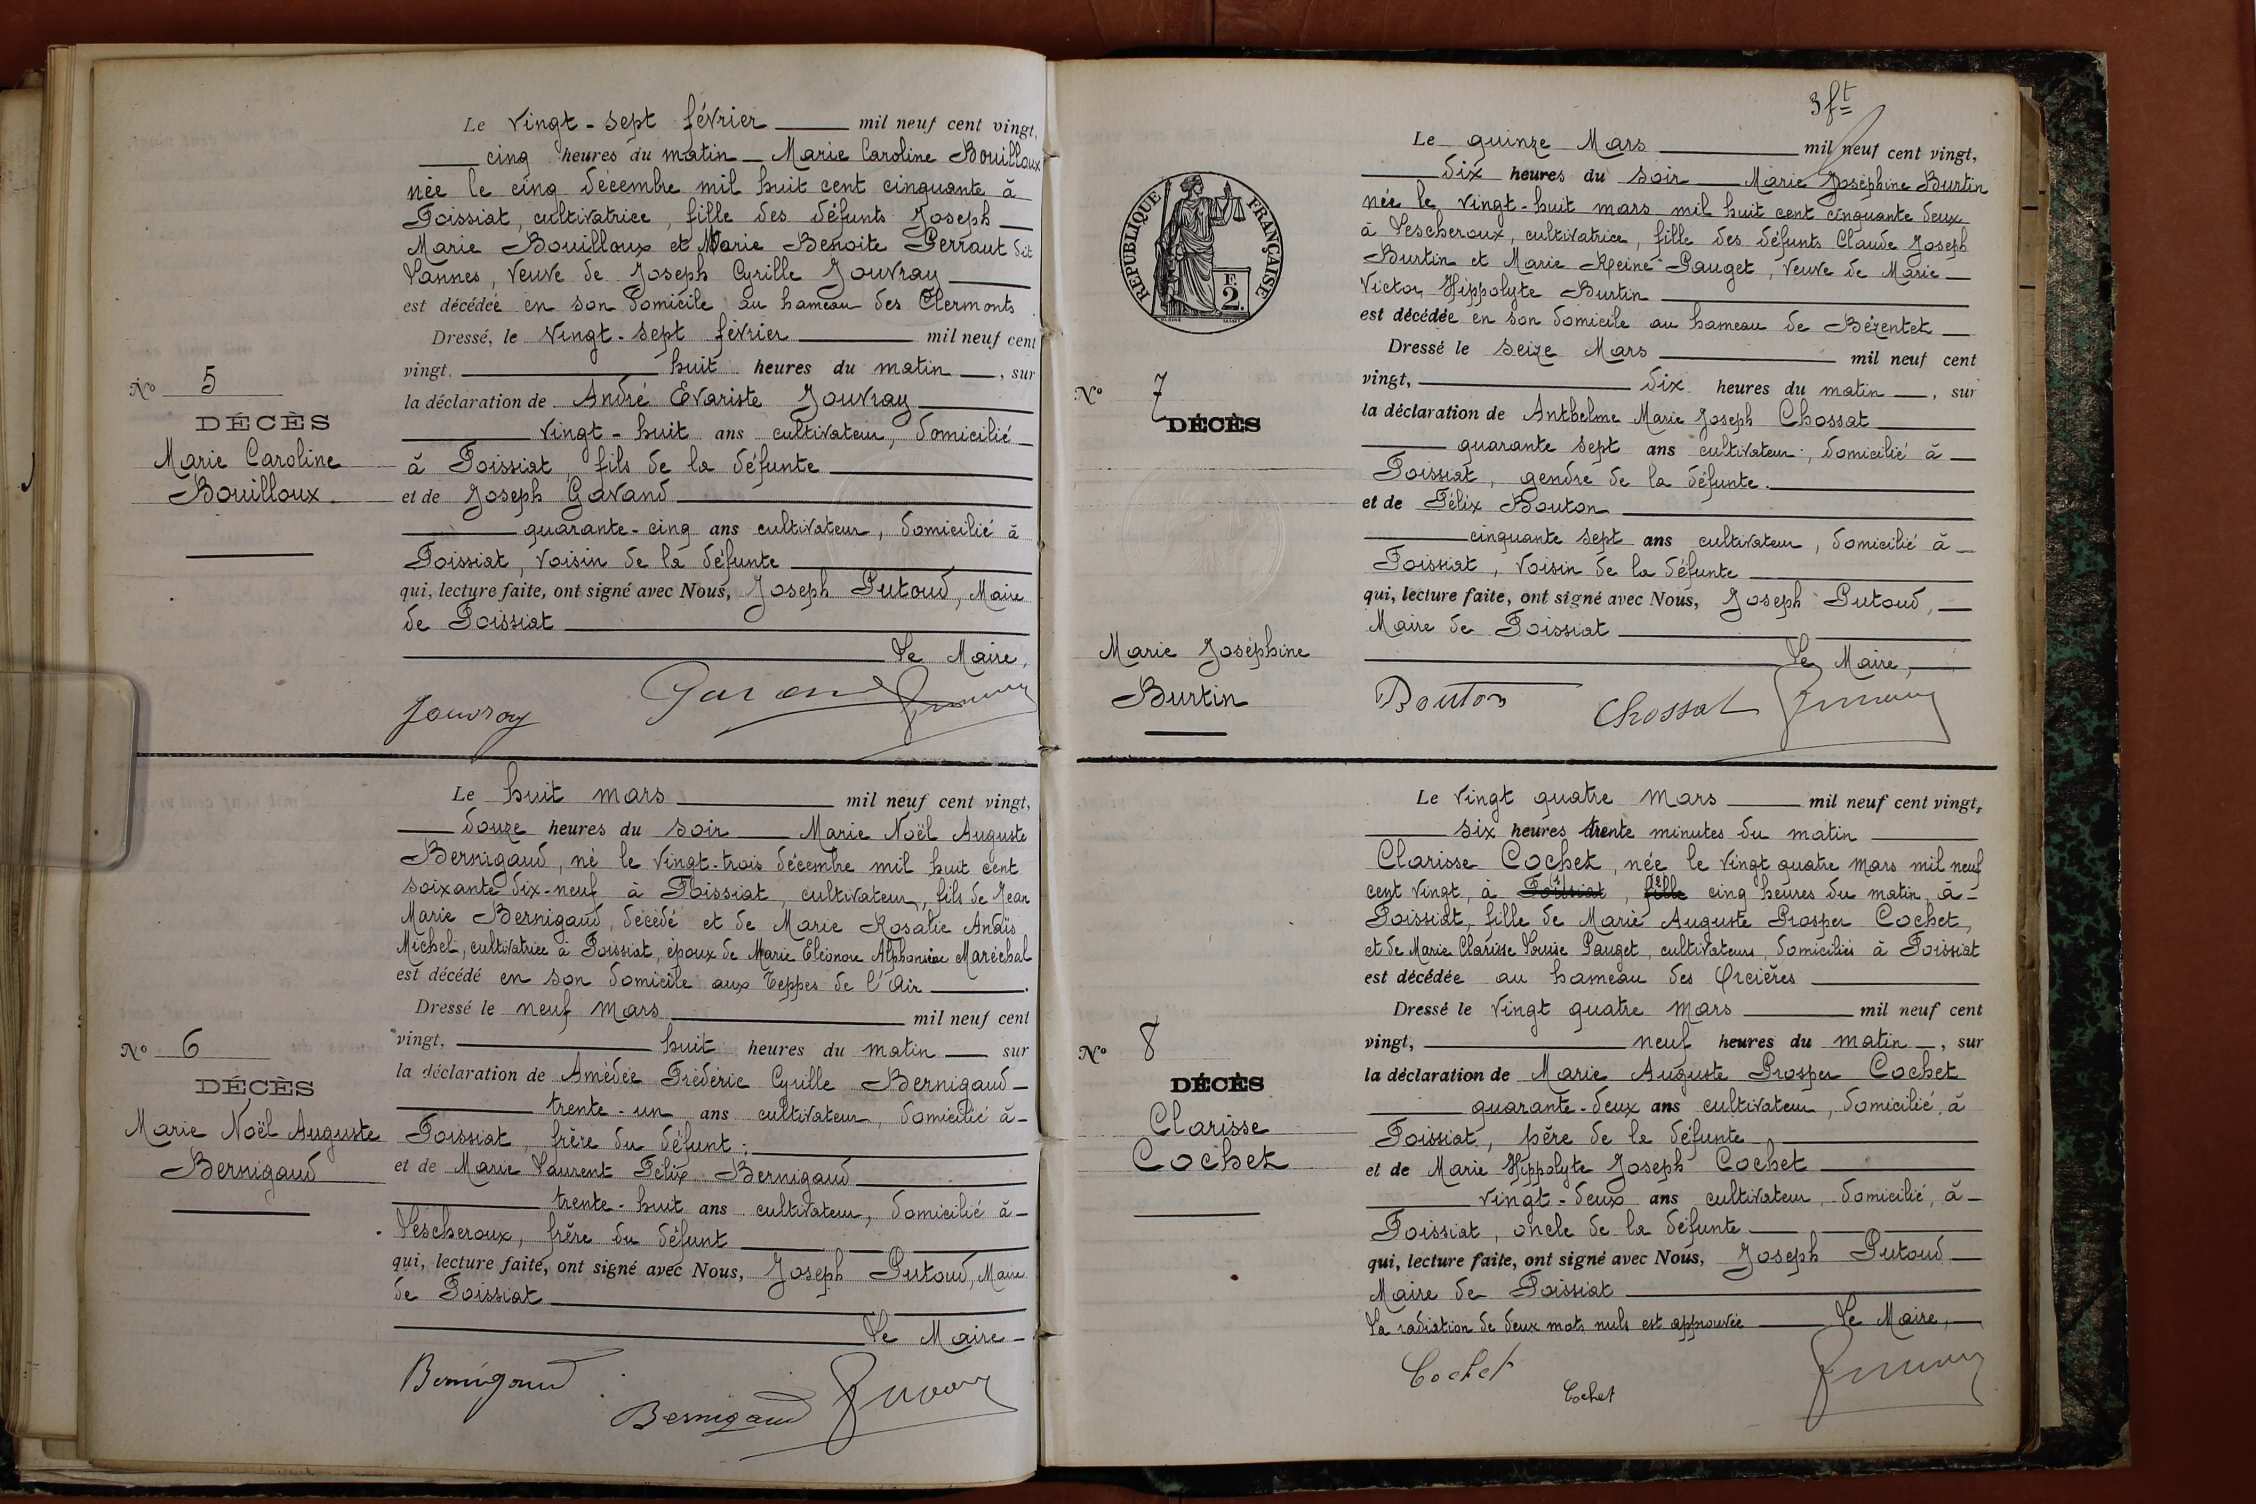 Le vingt-sept février mil neuf cent vingt,
cinq heures du matin Marie Caroline Bouilloux
née le cinq décembre mil huit cent cinquante à
Foissiat, cultivatrice, fille des défunts Joseph
Marie Bouilloux et Marie Benoite Perraut dit
Vannes, veuve de Joseph Cyrille Jouvray
est décédée en son domicile au hameau des Clermonts
Dressé, le vingt-sept février mil neuf cent
vingt, huit heures du matin, sur
la déclaration de André Evariste Jouvray
vingt-huit ans cultivateur, domicilié
à Foissiat, fils de la défunte
et de Joseph Gavand
quarante-cinq ans cultivateur, domicilié à
Foissiat, voisin de la défunte
qui, lecture faite, ont signé avec Nous, Joseph Putoud, Maire
de Foissiat
Le Maire,
Jouvray Gavand
No 5
DÉCÈS
Marie Caroline
Bouilloux.
Le huit mars mil neuf cent vingt,
douze heures du soir Marie Noël Auguste
Bernigaud, né le vingt-trois décembre mil huit cent
soixante dix-neuf à Foissiat, cultivateur, fils de Jean
Marie Bernigaud, décédé et de Marie Rosalie Anaïs
Michel, cultivatrice à Foissiat, époux de Marie Eléonore Alphonsine Maréchal
est décédé en son domicile aux Teppes de l'Air.
Dressé le neuf mars mil neuf cent
vingt, huit heures du matin sur
la déclaration de Amédée Frédéric Cyrille Bernigaud
trente-un ans cultivateur, domicilié à
Foissiat, frère du défunt.
et de Marie Laurent Félix Bernigaud
trente-huit ans cultivateur, domicilié à
Lescheroux, frère du défunt
qui, lecture faite, ont signé avec Nous, Joseph Putoud, Maire
de Foissiat
Le Maire
Bernigaud
Bernigaud
No 6
DÉCÈS
Marie Noël Auguste
Bernigaud
3 ft
Le quinze Mars mil neuf cent vingt,
dix heures du soir Marie Joséphine Burtin
née le vingt-huit mars mil huit cent cinquante deux
à Lescheroux, cultivatrice, fille des défunts Claude Joseph
Burtin et Marie Reine Pauget, veuve de Marie
Victor Hippolyte Burtin
est décédée en son domicile au hameau de Bézentet
Dressé le seize Mars mil neuf cent
vingt, dix heures du matin, sur
la déclaration de Anthelme Marie Joseph Chossat
quarante sept ans cultivateur, domicilié à
Foissiat, gendre de la défunte.
et de Félix Bouton
cinquante sept ans cultivateur, domicilié à
Foissiat, voisin de la défunte
qui, lecture faite, ont signé avec Nous, Joseph Putoud,
Maire de Foissiat
Le Maire,
Bouton Chossat
REPUBLIQUE FRANÇAISE
F.
2.
No 7
DÉCÈS
Marie Joséphine
Burtin
Le vingt quatre mars mil neuf cent vingt,
six heures trente minutes du matin
Clarisse Cochet, née le vingt quatre mars mil neuf
cent vingt, à Foissiat, fille cinq heures du matin à
Foissiat, fille de Marie Auguste Prosper Cochet,
et de Marie Clarisse Louise Pauget, cultivateurs, domiciliés à Foissiat
est décédée au hameau des Orcières
Dressé le vingt quatre mars mil neuf cent
vingt, neuf heures du matin, sur
la déclaration de Marie Auguste Prosper Cochet
quarante-deux ans cultivateur, domicilié, à
Foissiat, père de la défunte
et de Marie Hippolyte Joseph Cochet
vingt-deux ans cultivateur, domicilié, à
Foissiat, oncle de la défunte
qui, lecture faite, ont signé avec Nous, Joseph Putoud
Maire de Foissiat
La radiation de deux mots nuls est approuvée Le Maire,
Cochet
Cochet
No 8
DÉCÈS
Clarisse
Cochet